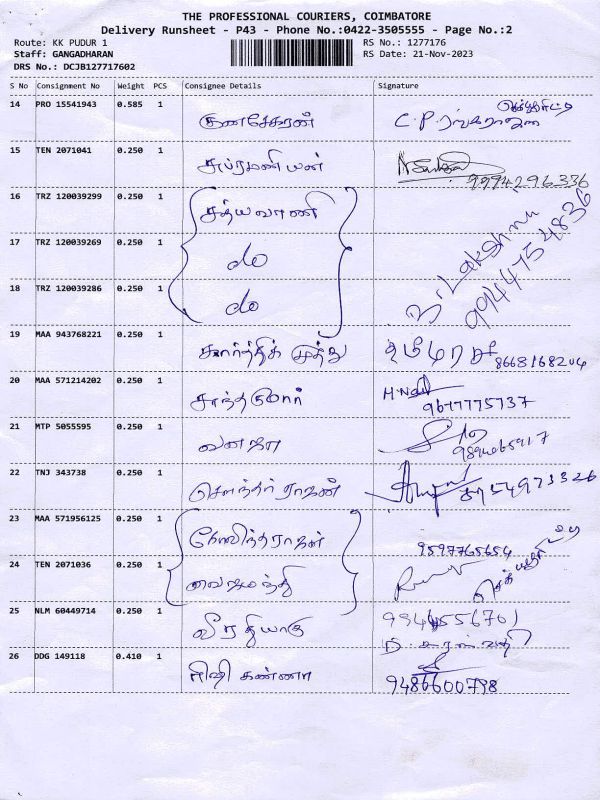 THE PROFESSIONAL COURIERS, COIMBATORE
Delivery Runsheet - P43 - Phone No.:0422-3505555 - Page No.:2
Route: KK PUDUR 1 RS No.: 1277176
Staff: GANGADHARAN RS Date: 21-Nov-2023
DRS No.: DCJB127717602
S No Consignment No Weight PCS Consignee Details Signature
14 PRO 15541943 0.585 1 குணசேகரன் C.P.ரங்கராஜன்
15 TEN 2071041 0.250 1 சுப்ரமணியன்
9994296336
16 TRZ 120039299 0.250 1 சத்யவாணி
17 TRZ 120039269 0.250 1 do Lakshmi
9944754836
18 TRZ 120039286 0.250 1 do
19 MAA 943768221 0.250 1 கார்த்திக் முத்து 8668168204
20 MAA 571214202 0.250 1 சாந்தகுமார்
9677775737
21 MTP 5055595 0.250 1 வனஜா
22 TNJ 343738 0.250 1 சௌந்தர் ராஜன் 8754973326
23 MAA 571956125 0.250 1 கோவிந்தராஜன்
9597765654
24 TEN 2071036 0.250 1 வைஜெயந்தி
25 NLM 60449714 0.250 1 வீ ரதியாகு
26 DDG 149118 0.410 1 ரிஷி கண்ணா
9486600798